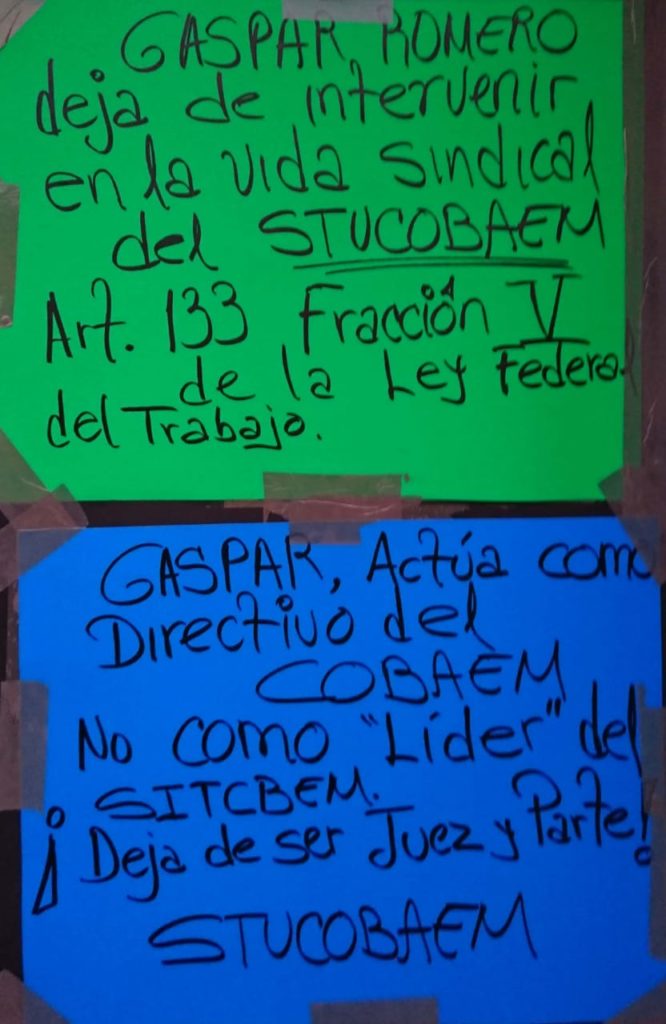 GASPAR ROMERO
deja de intervenir
en la vida sindical
del STUCOBAEM
Art. 133 Fracción V
de la Ley Federal
del Trabajo.
GASPAR, Actúa como
Directivo del
COBAEM
No como "Líder" del
SITCBEM.
¡Deja de ser Juez y Parte!
STUCOBAEM